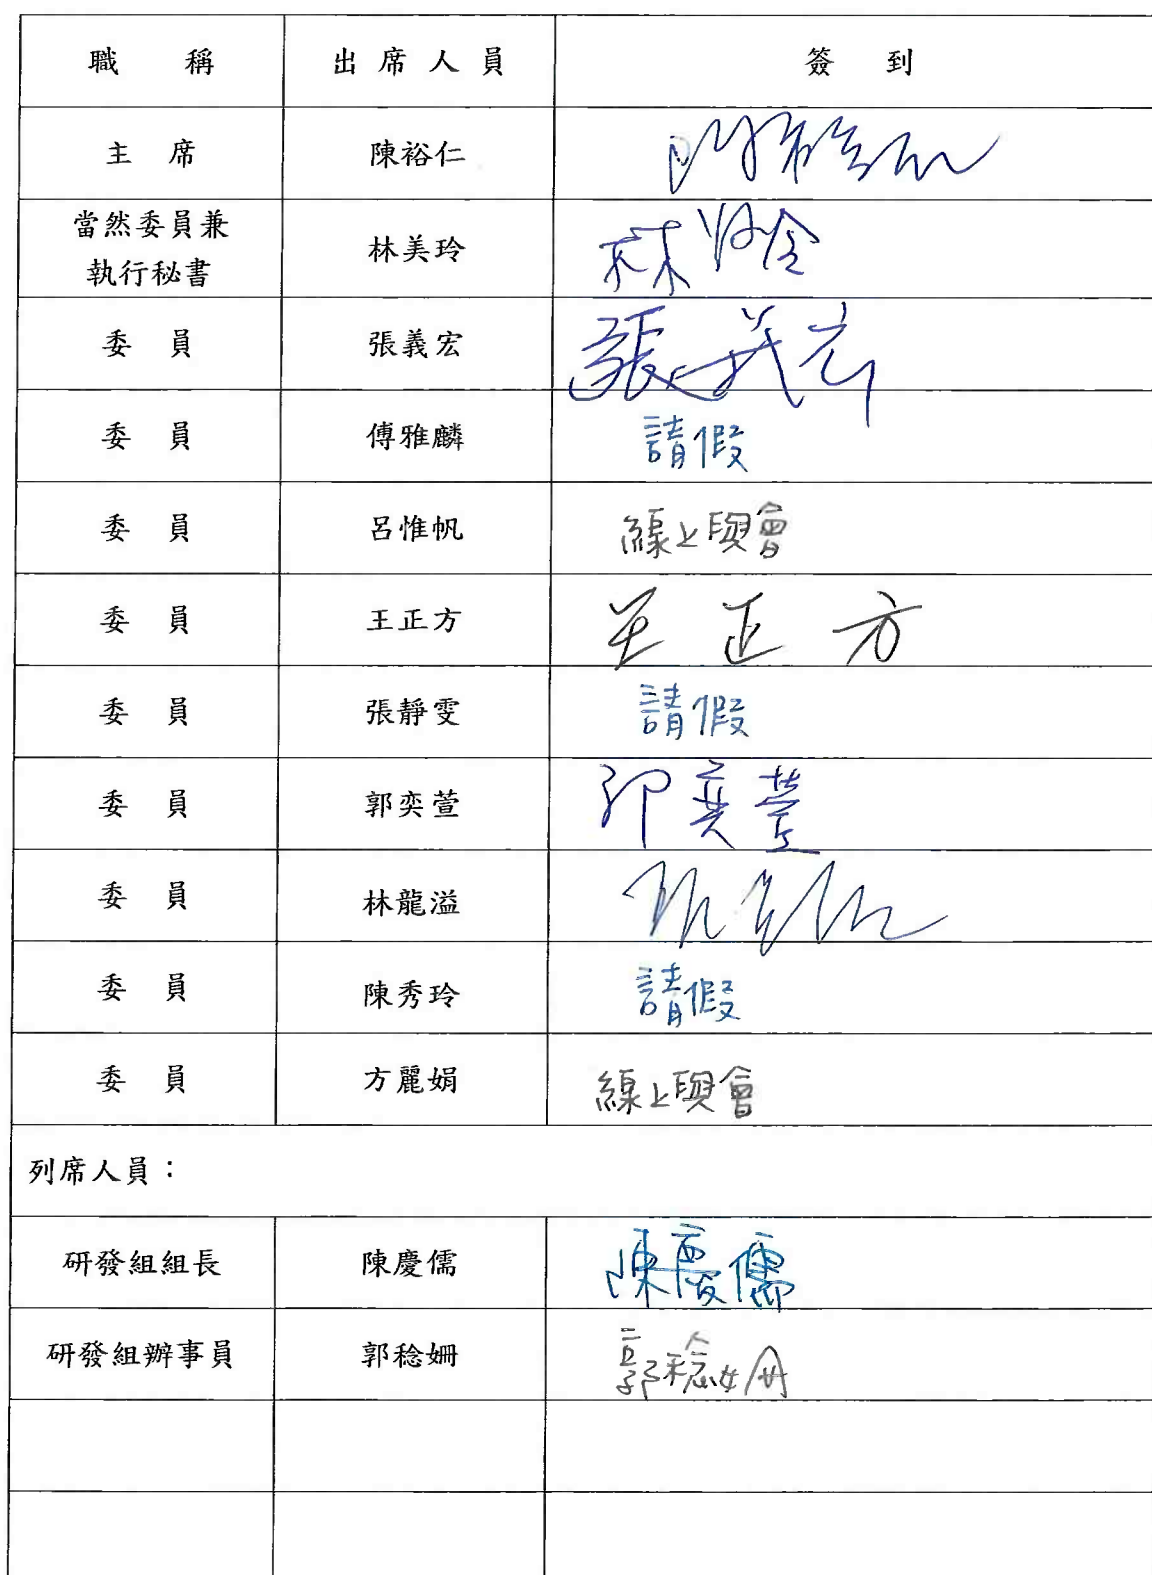 職 稱 出 席 人 員 簽 到
主 席 陳裕仁
當然委員兼
執行秘書 林美玲 林美玲
委 員 張義宏 張義宏
委 員 傅雅麟 請假
委 員 呂惟帆 線上與會
委 員 王正方 王正方
委 員 張靜雯 請假
委 員 郭奕萱 郭奕萱
委 員 林龍溢
委 員 陳秀玲 請假
委 員 方麗娟 線上與會
列席人員：
研發組組長 陳慶儒 陳慶儒
研發組辦事員 郭稔姍 郭稔姍